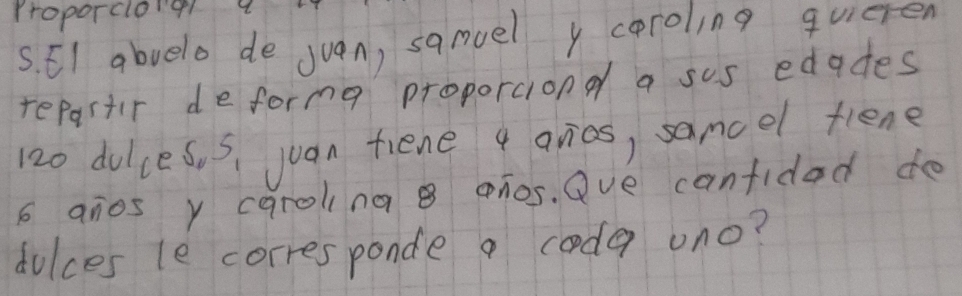 Proporcional a
5. El abuelo de juan, samuel y carolina quieren
repartir de forma proporcional a sus edades
120 dulces, S, juan tiene 4 años, samuel tiene
6 años y carolina 8 años. Que cantidad de
dulces le corresponde a cada uno?